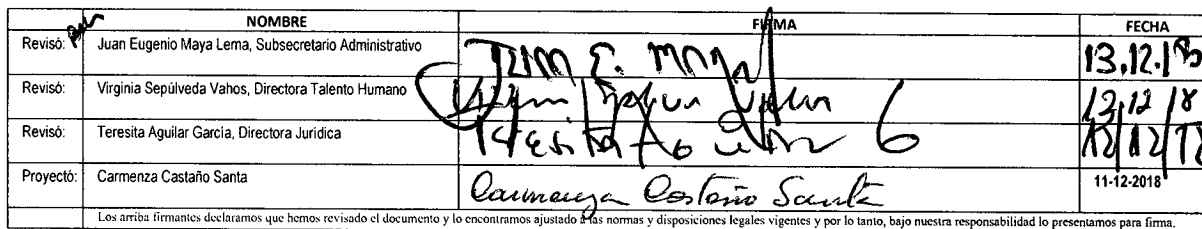 NOMBRE FIRMA FECHA
Revisó: Juan Eugenio Maya Lema, Subsecretario Administrativo Juan E. Maya 13.12.18
Revisó: Virginia Sepúlveda Vahos, Directora Talento Humano 13,12 18
Revisó: Teresita Aguilar García, Directora Jurídica Teresita 12/12/18
Proyectó: Carmenza Castaño Santa Carmenza Castaño Santa 11-12-2018
Los arriba firmantes declaramos que hemos revisado el documento y lo encontramos ajustado a las normas y disposiciones legales vigentes y por lo tanto, bajo nuestra responsabilidad lo presentamos para firma.